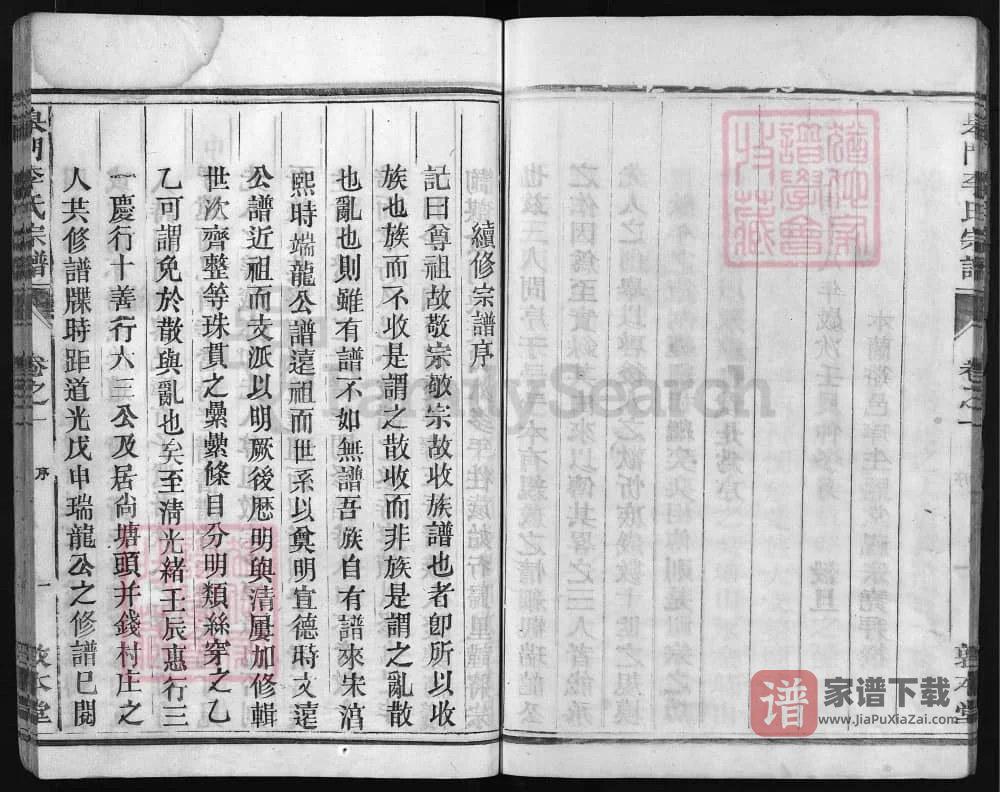 續修宗譜序
記曰尊祖故敬宗敬宗故收族譜也者卽所以收
族也族而不收是謂之散收而非族是謂之亂散
也亂也則雖有譜不如無譜吾族自有譜來宋淳
熙時端龍公譜遠祖而世系以奠明宣德時文遠
公譜近祖而支派以明厥後歷明與清屢加修輯
世次齊整等珠貫之纍纍條目分明類絲穿之乙
乙可謂免於散與亂也矣至清光緒壬辰惠行三
一慶行十善行六三公及居尚塘頭并錢村庄之
人共修譜牒時距道光戊申瑞龍公之修譜已閱
門李氏宗譜
卷之一
序
一
敦本堂
門李氏宗譜
卷之一
敦本堂
譜學會
收藏
FamilySearch
谱
家谱下载
www.JiaPuXiaZai.com